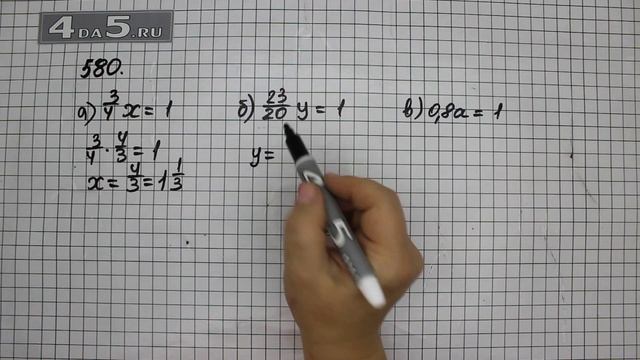 4DA5.RU
580.
а) 3/4 x = 1
3/4 · 4/3 = 1
x = 4/3 = 1 1/3
б) 23/20 y = 1
y =
в) 0,8a = 1